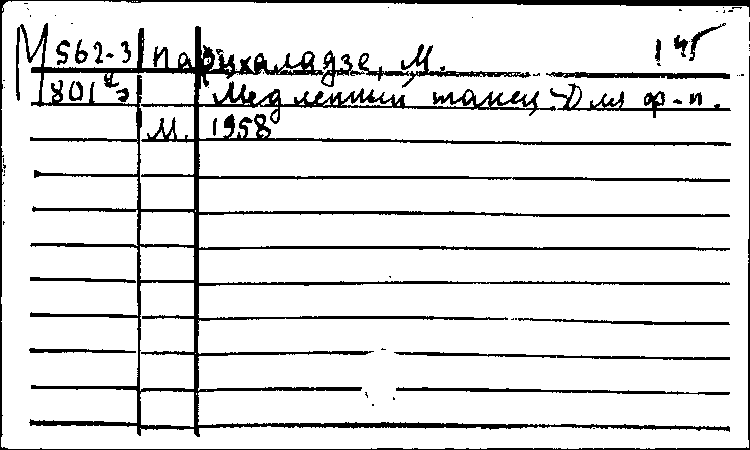 М 562-3 Парцхаладзе, М.
1801 Медленный танец. Для ф-п.
М. 1958